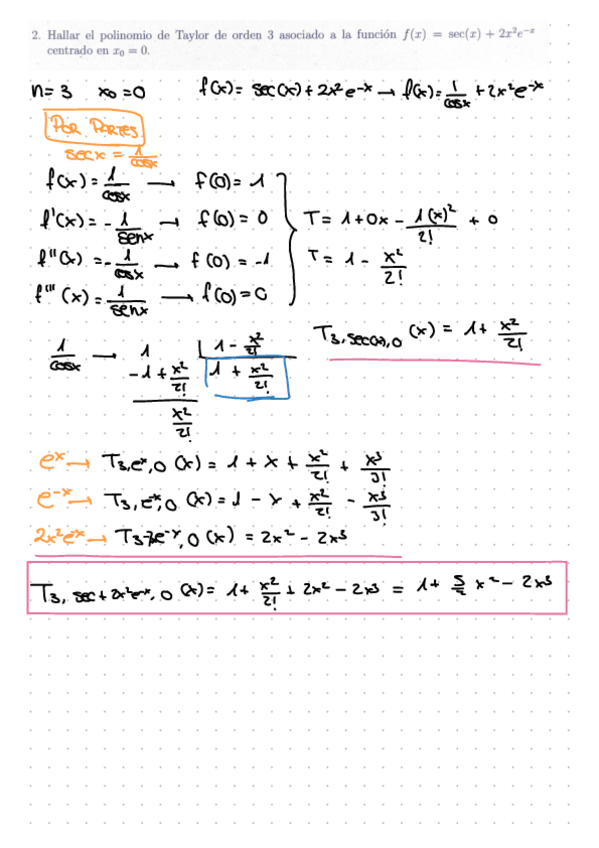 2. Hallar el polinomio de Taylor de orden 3 asociado a la función f(x) = sec(x) + 2x²e⁻ˣ
centrado en x₀ = 0.
n = 3 x₀ = 0 f(x) = sec(x) + 2x² e⁻ˣ → f(x) = 1/cosx + 2x²e⁻ˣ
POR PARTES
secx = 1/cosx
f(x) = 1/cosx → f(0) = 1
f'(x) = - 1/senx → f(0) = 0
f''(x) = - 1/cosx → f(0) = -1
f'''(x) = 1/senx → f(0) = 0
T = 1 + 0x - 1(x)²/2! + 0
T = 1 - x²/2!
1/cosx → 1 | 1 - x²/2!
-1 + x²/2! 1 + x²/2!
x²/2!
T₃,sec(x),₀ (x) = 1 + x²/2!
eˣ → T₃,eˣ,₀ (x) = 1 + x + x²/2! + x³/3!
e⁻ˣ → T₃,e⁻ˣ,₀ (x) = 1 - x + x²/2! - x³/3!
2x²e⁻ˣ → T₃ 2x²e⁻ˣ,₀ (x) = 2x² - 2x³
T₃, sec + 2x²e⁻ˣ, ₀ (x) = 1 + x²/2! + 2x² - 2x³ = 1 + 5/2 x² - 2x³